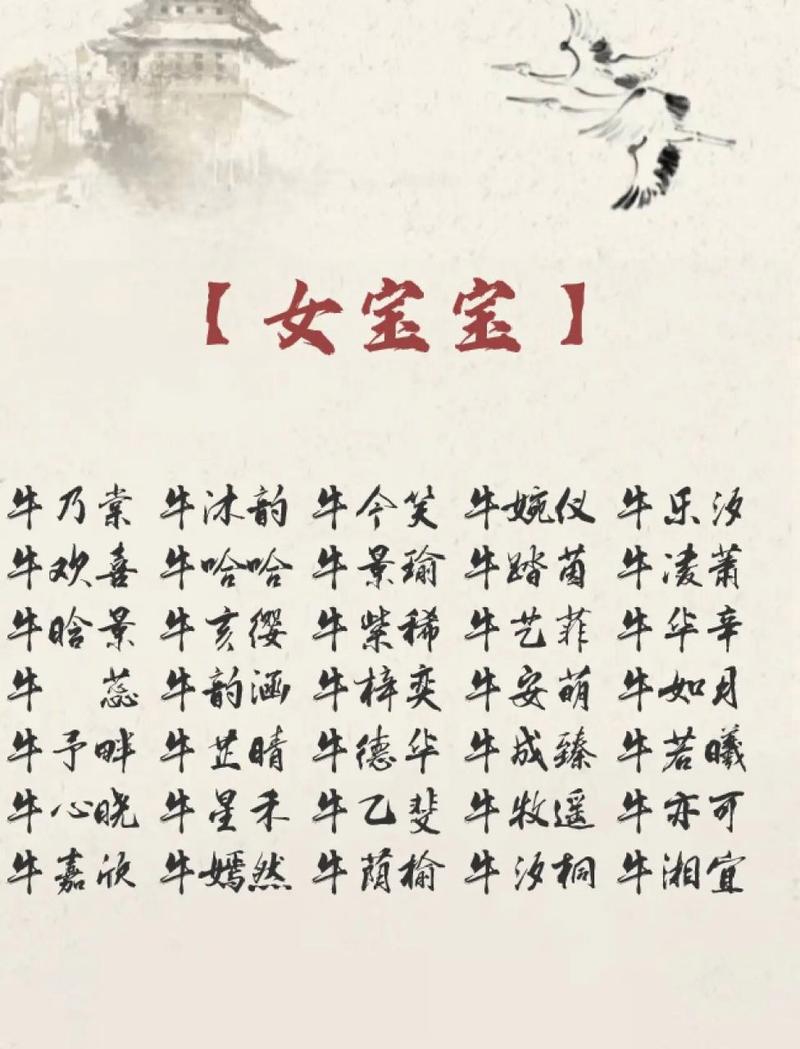 【女宝宝】
牛乃棠 牛沐韵 牛今笑 牛婉仪 牛乐汐
牛欢喜 牛哈哈 牛景瑜 牛踏茵 牛凌萧
牛晗景 牛亥缨 牛紫稀 牛艺菲 牛华辛
牛 蕊 牛韵涵 牛梓奕 牛安萌 牛如月
牛予畔 牛芷晴 牛德华 牛成臻 牛若曦
牛心晓 牛星禾 牛乙斐 牛牧遥 牛亦可
牛嘉欣 牛嫣然 牛荫榆 牛汐桐 牛湘宜